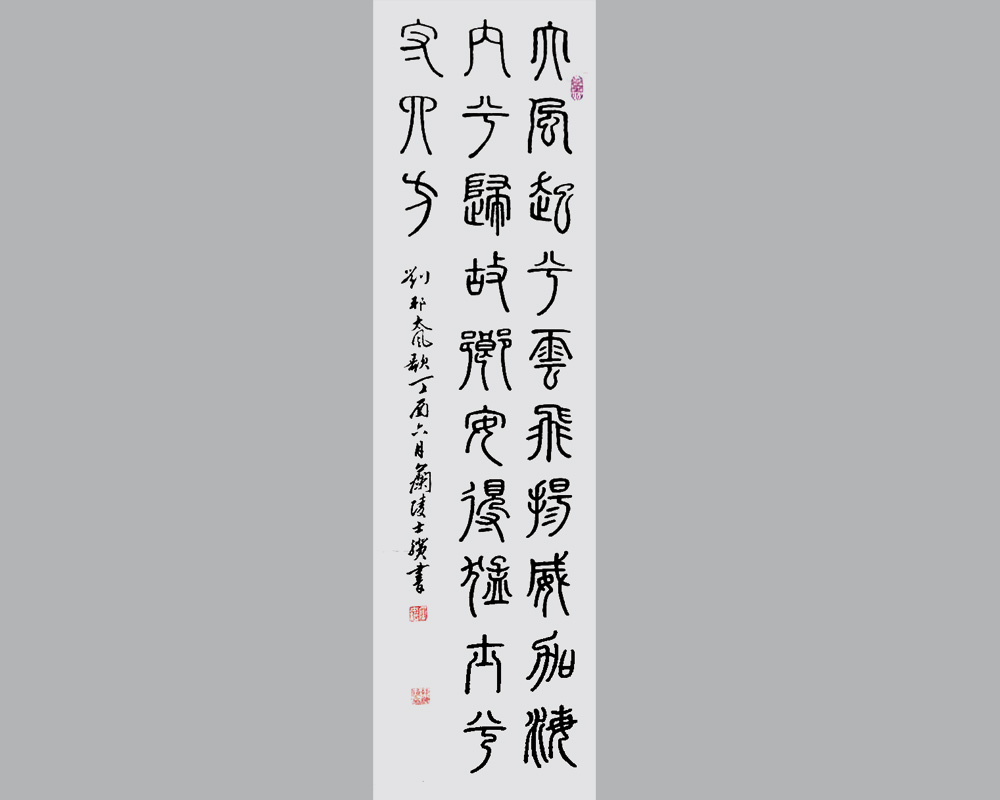 大風起兮雲飛揚威加海
内兮歸故鄉安得猛士兮
守四方
劉邦大風歌丁酉六月蘭陵士書